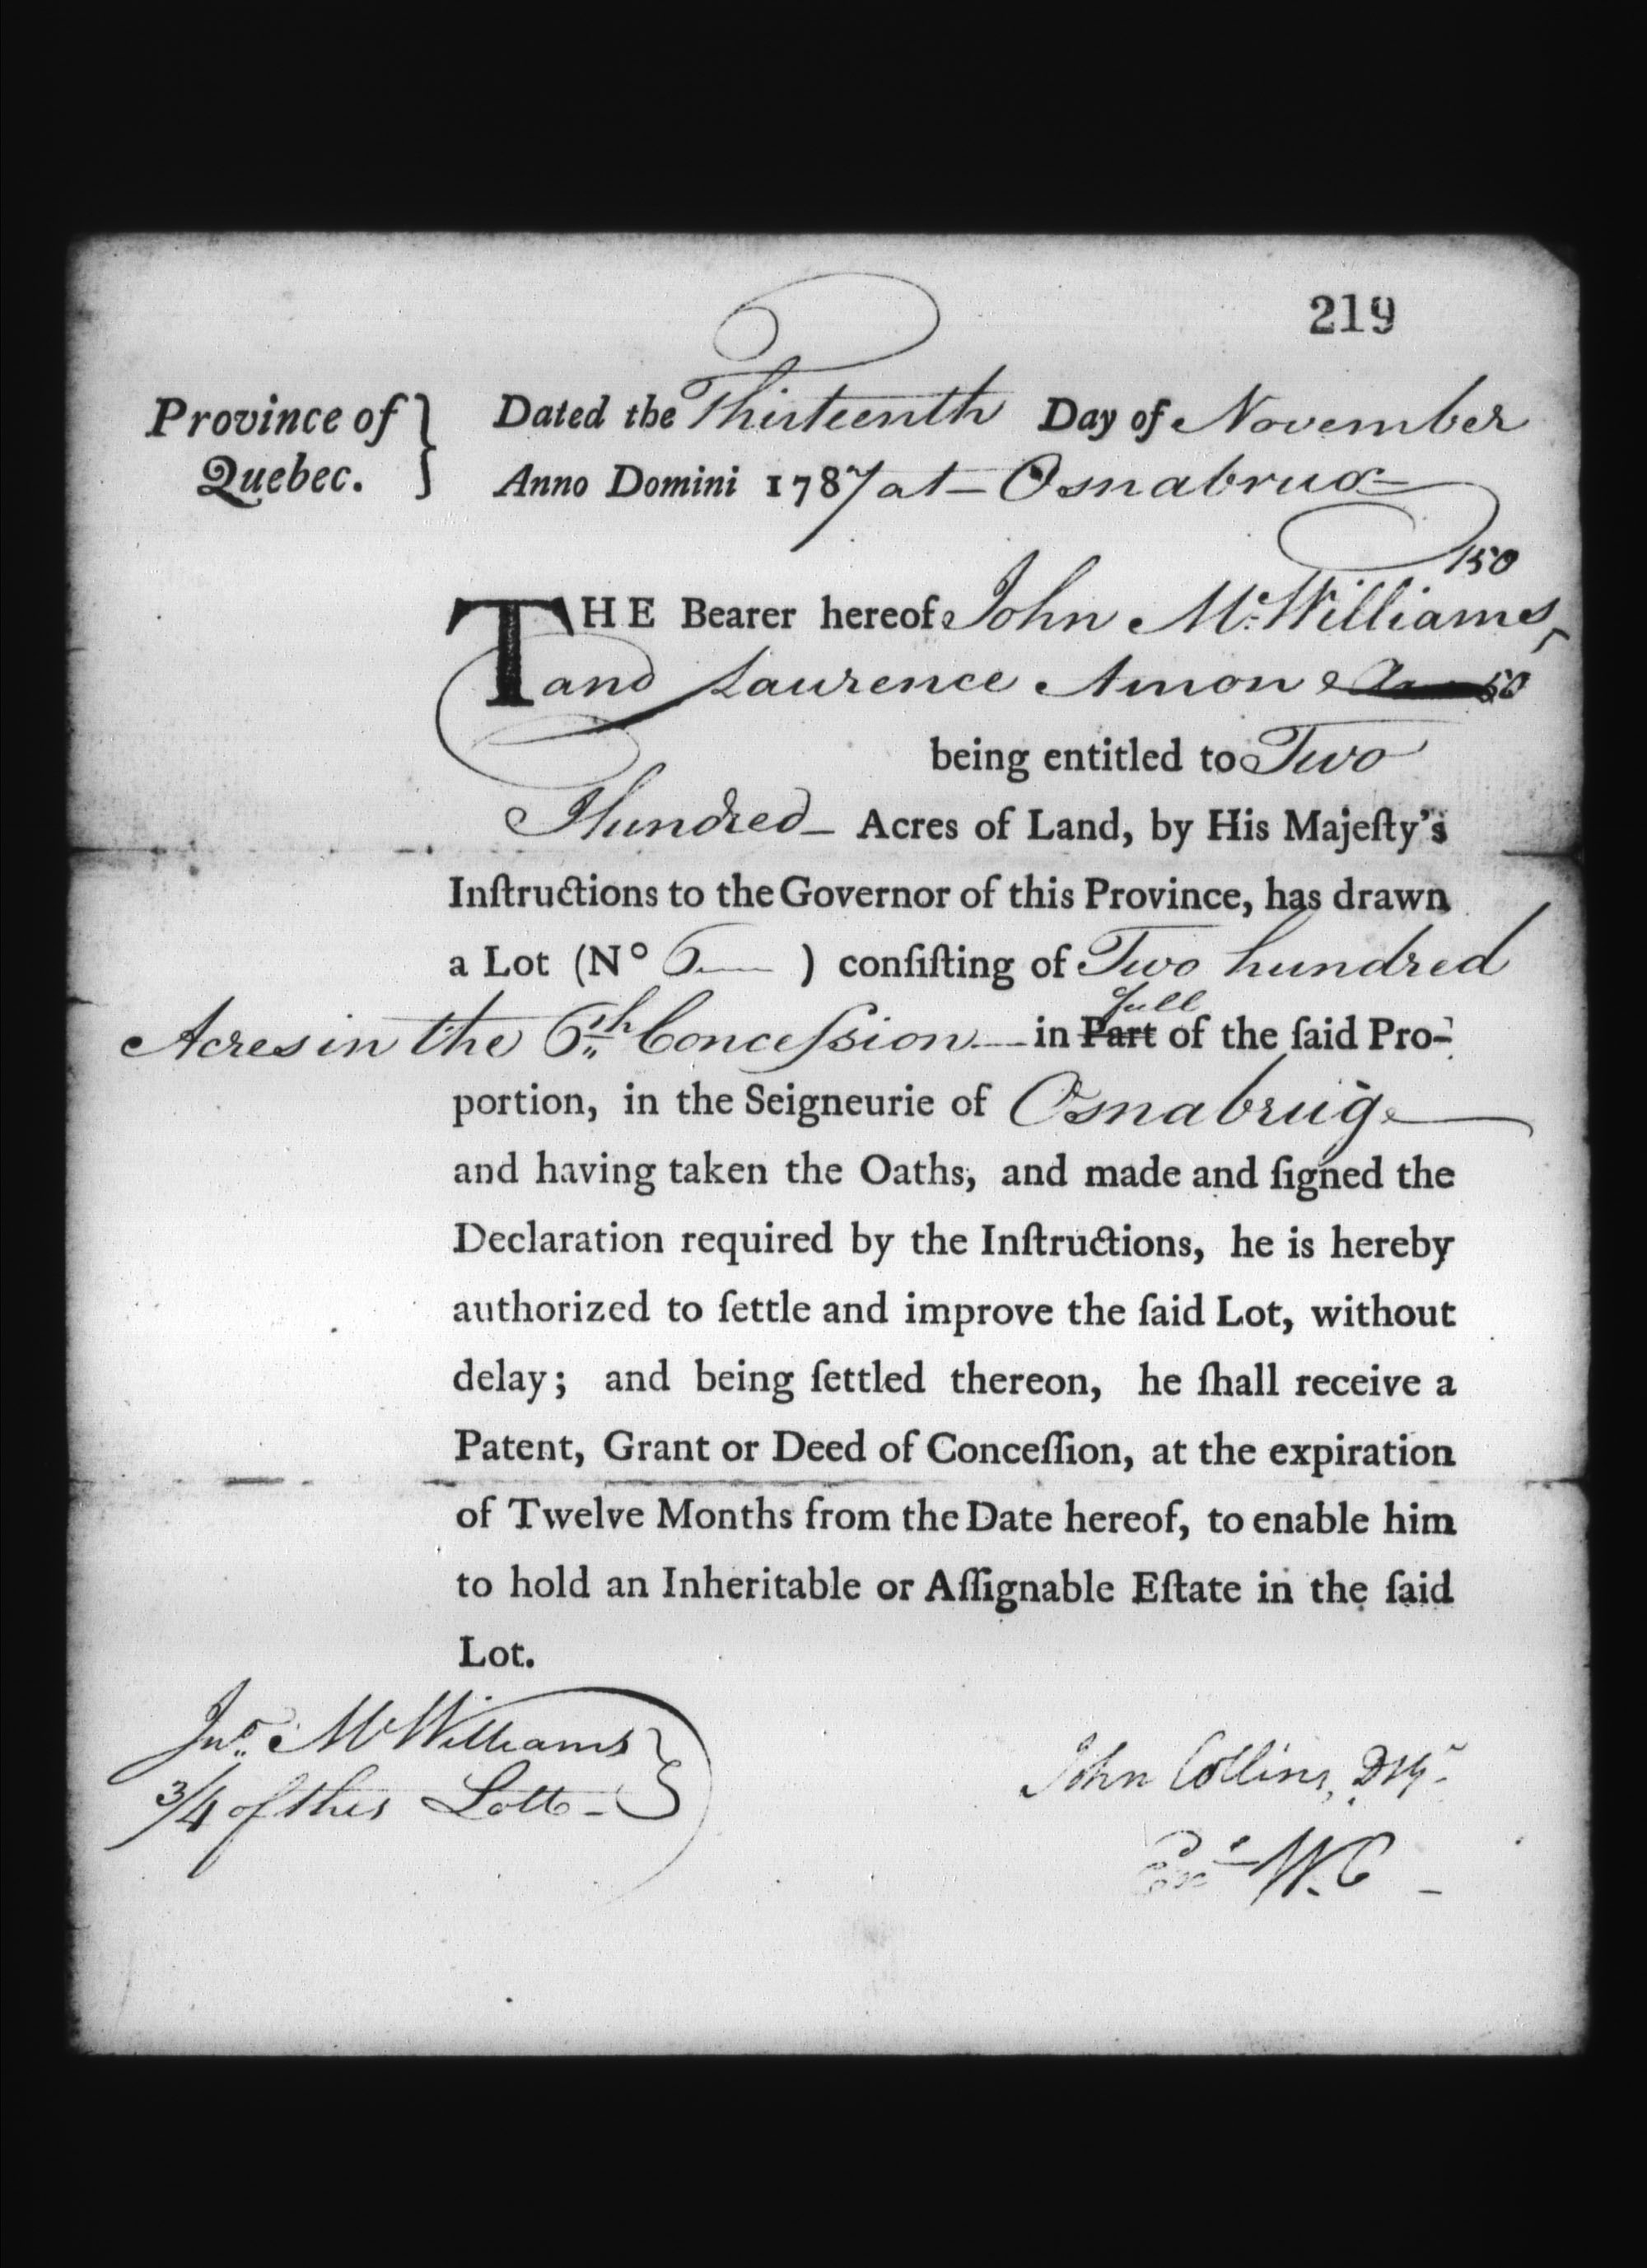 219
Province of Quebec. } Dated the Thirteenth Day of November
Anno Domini 1787 at Osnabrug
150
THE Bearer hereof John Mc Williams
and Laurence Amon & 50
being entitled to Two
Hundred Acres of Land, by His Majeſty's
Inſtructions to the Governor of this Province, has drawn
a Lot (N° 6 ) conſiſting of Two hundred
full
Acres in the 6th Conceſsion in Part of the ſaid Pro-
portion, in the Seigneurie of Osnabrug
and having taken the Oaths, and made and ſigned the
Declaration required by the Inſtructions, he is hereby
authorized to ſettle and improve the ſaid Lot, without
delay; and being ſettled thereon, he ſhall receive a
Patent, Grant or Deed of Conceſſion, at the expiration
of Twelve Months from the Date hereof, to enable him
to hold an Inheritable or Aſſignable Eſtate in the ſaid
Lot.
Jno. McWilliams
3/4 of this Lott
John Collins, D
W.C